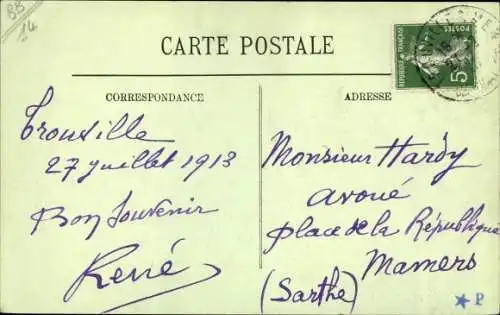 BB
14
CARTE POSTALE
CORRESPONDANCE
ADRESSE
REPUBLIQUE FRANÇAISE
POSTES
5
Trouville
27 juillet 1913
Bon Souvenir
René
Monsieur Hardy
avoué
place de la République
Mamers
(Sarthe)
P